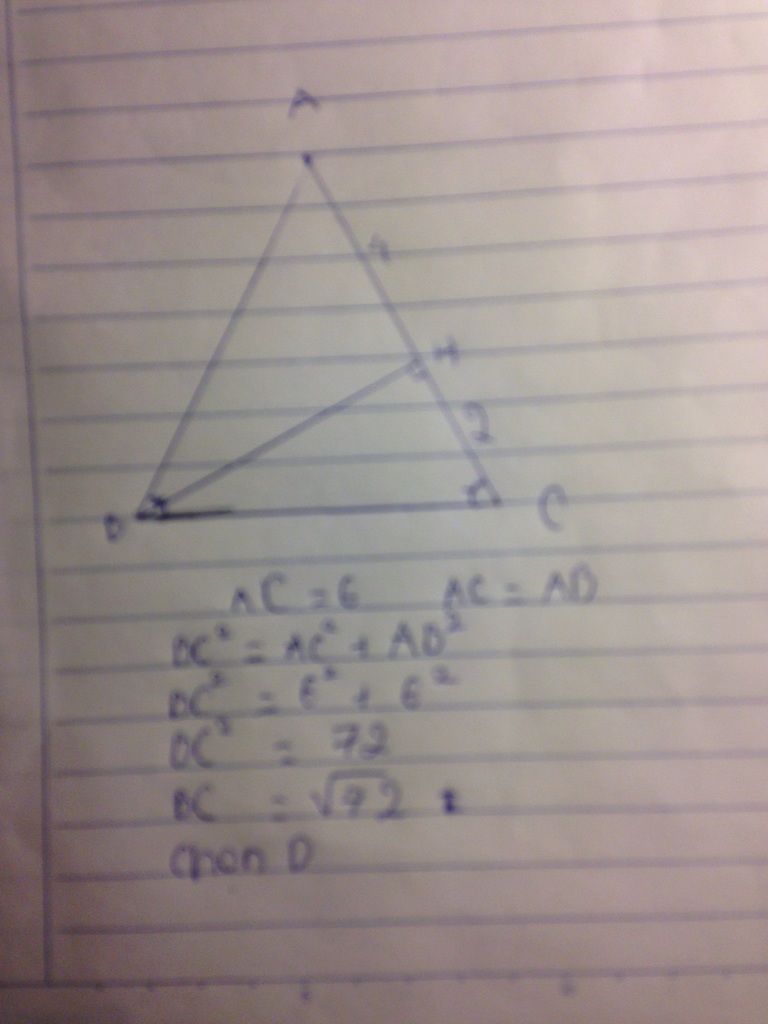 A
4
H
2
D
C
AC = 6 AC = AD
DC² = AC² + AD²
DC² = 6² + 6²
DC² = 72
DC = √72
Chọn D